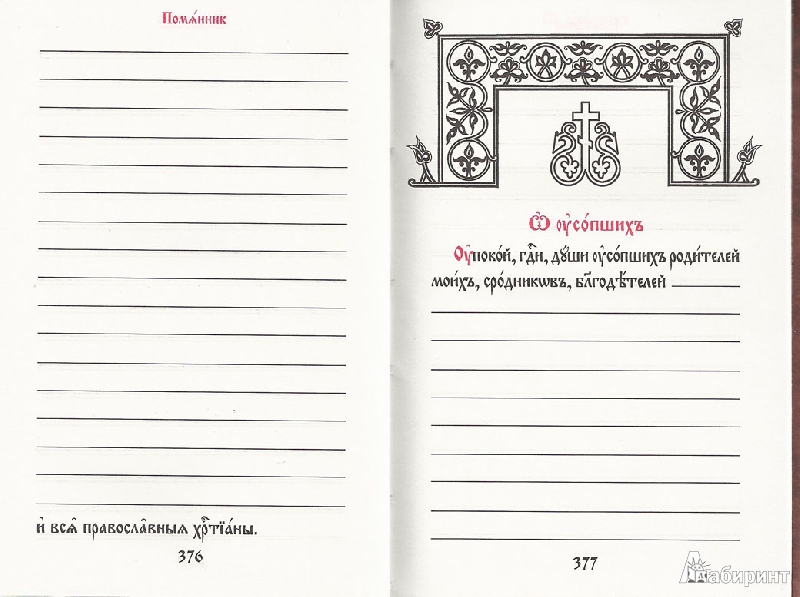 Помѧ́нник
и҆ всѧ̑ правосла̑вныѧ хрⷭ҇тїа́ны.
376
Ѽ ᲂу҆со́пшихъ
Оу҆поко́й, гдⷭ҇и, дꙋ́шы ᲂу҆со́пшихъ роди́телей
мои́хъ, сро́дникѡвъ, бл҃годѣ́телей
377
Лабиринт